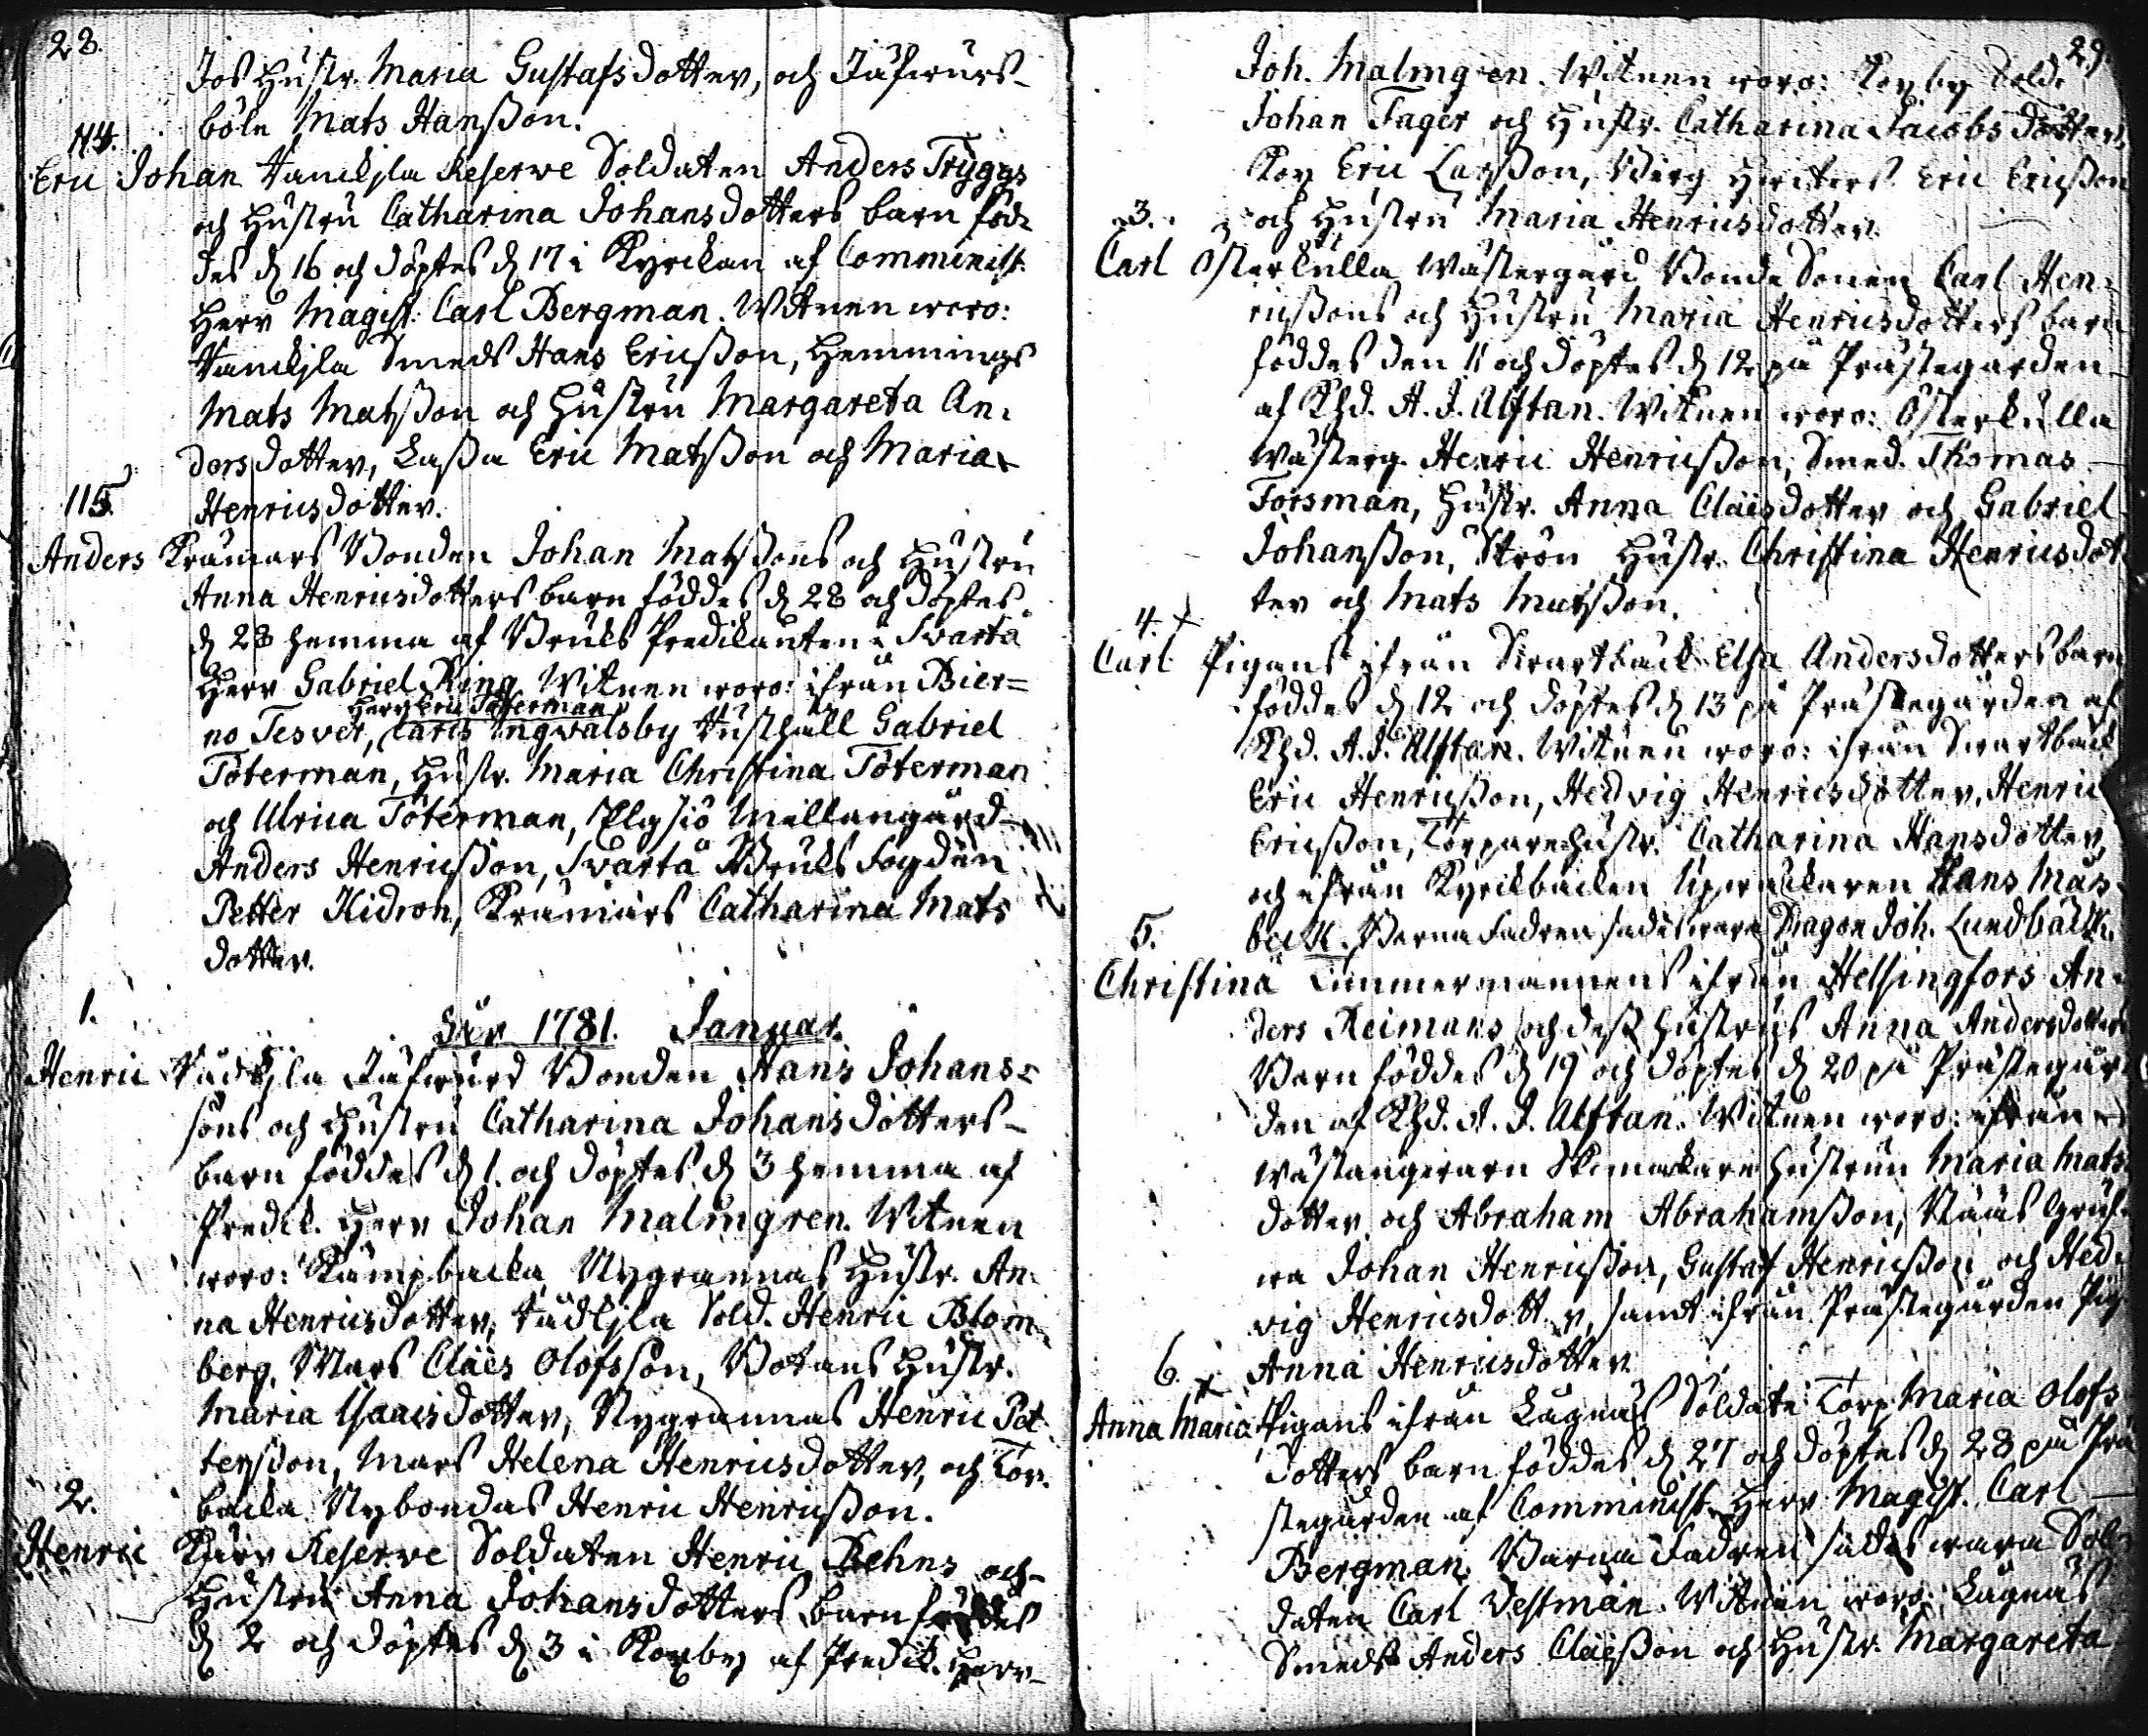 28.
Jos Hustr. Maria Gustafsdotter, och Jäfwurs-
böle Mats Hanßon.
114.
Eric Johan Vanckjla Reserve Soldaten Anders Tryggs
och Hustru Catharina Johansdotters barn föd-
des d 16 och döptes d 17 i Kyrckan af Comminist.
Herr Magist. Carl Bergman. Witnen woro:
Vanckjla Smeds Hans Ericßon, Hemmings
Mats Matsßon och Hustru Margareta An-
dersdotter, Laßa Eric Matsßon och Maria
Henricsdotter.
115.
Anders Krämars Bonden Johan Matsßons och Hustru
Anna Henricsdotters barn föddes d 28 och döptes
d 28 hemma af Bruks Predikanten i Svartå
Herr Gabriel Ring Witnen woro: ifrån Bier=
Herr Eric Töterman
no Tesver, Caris Ingvalsby Rusthåll Gabriel
Töterman, Hustr. Maria Christina Töterman
och Ulrica Töterman, Elgsiö Mellangård
Anders Henricßon, Svartå Bruks Fogden
Petter Hidron, Krämars Catharina Mats
dotter.
1.
Åhr 1781. Januar.
Henric Vådkjla Jäfwurd Bonden Hans Johans=
sons och Hustru Catharina Johansdotters
barn föddes d 1. och döptes d 3 hemma af
Predik. Herr Johan Malmgren. Witnen
woro: Kämpbacka Nygrannas Hustr. An-
na Henricsdotter, Vådkjla Sold. Henric Blom-
berg, Mars Claes Olofsson, Botans Hustr.
Maria Isaacsdotter, Nygrannas Henric Pet-
tersßon, Mars Helena Henricsdotter, och Tor-
backa Nybondas Henric Henricßon.
2.
Henric Kärr Reserve Soldaten Henric Rehns och
Hustru Anna Johansdotters barn föddes
d 2 och döptes d 3 i Koxby af Predik. Herr
29.
Joh. Malmgren. Witnen woro: Koxby Sold.
Johan Fager och Hustr. Catharina Jacobsdotter,
Kox Eric Larsßon, Berg Eric Ericßon
3. och Hustru Maria Henricsdotter.
Carl Österkulla Wästergård Bonde Sonen Carl Hen-
ricßons och Hustru Maria Henricsdotters barn
föddes den 11 och döptes d 12 på Prästegården
af Khd. A. J. Alftan. Witnen woro: Österkulla
Wästerg. Henric Henricßon, Smed. Thomas
Forsman, Hustr. Anna Claesdotter och Gabriel
Johanßon, Strön Hustr. Christina Henricsdot-
ter och Mats Matsßon.
4. +
Carl Pigans ifrån Svartbäck Elsa Andersdotters barn
föddes d 12 och döptes d 13 på Prästegården af
Khd. A. J. Alftan. Witnen woro: ifrån Svartbäck
Eric Henricßon, Hedvig Henricsdotter, Henric
Ericßon, Torparehustr. Catharina Hansdotter,
och ifrån Kyrckbacken Upwackaren Hans Mas-
beck. Barna Fadren sades vara Dragon Joh. Lundbäck.
5.
Christina Timmermannens ifrån Helsingfors An-
ders Reimans och deß Hustrus Anna Andersdotters
Barn föddes d 19 och döptes d 20 på Prästegår-
den af Khd. A. J. Alftan. Witnen woro: ifrån
Wästangerarn Skomakare Hustrun Maria Mats-
dotter och Abraham Abrahamsßon, Nääs
Johan Henricßon, Gustaf Henricßon och Hed-
vig Henricsdotter, samt ifrån Prästegården Pig.
Anna Henricsdotter.
6. +
Anna Maria Pigans ifrån Lagnäs Soldate Torp Maria Olofs
dotters barn föddes d 27 och döptes d 28 på Prä-
stegården af Comminist. Herr Magist. Carl
Bergman. Barna Fadren sades vara Sol-
daten Carl Vestman. Witnen woro: Lagnäs
Smeds Anders Claesßon och Hustr. Margareta